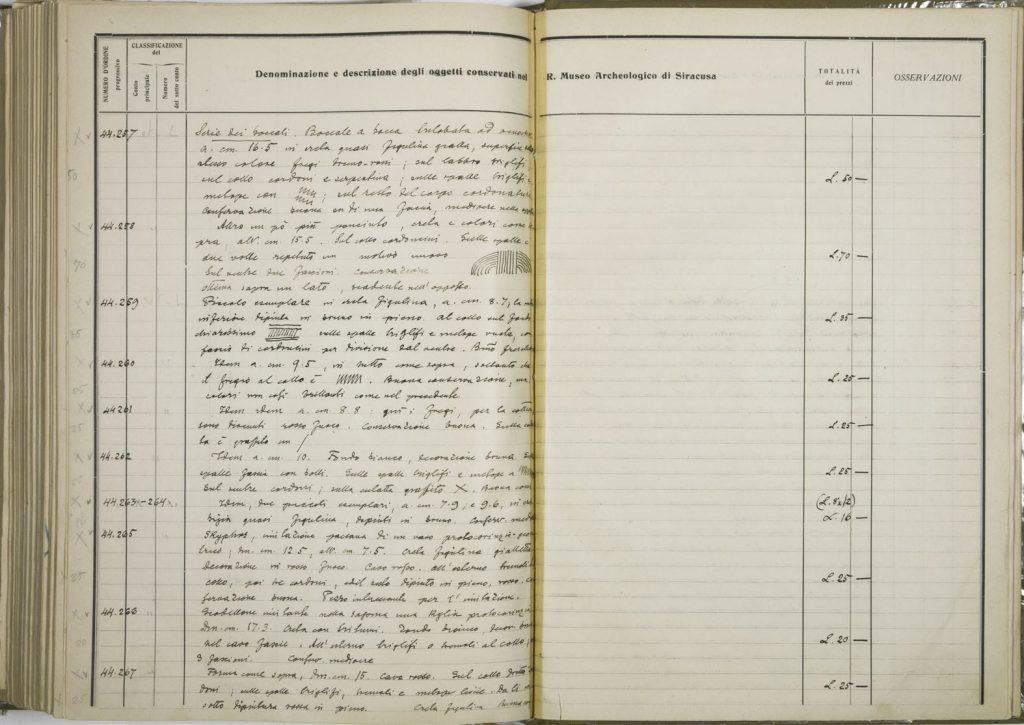 NUMERO D'ORDINE progressivo
CLASSIFICAZIONE del
Conto principale
Numero del sotto conto
Denominazione e descrizione degli oggetti conservati nel R. Museo Archeologico di Siracusa
TOTALITÀ dei prezzi
OSSERVAZIONI
44.257 Serie dei boccali. Boccale a bocca trilobata ad
a. cm. 16.5 in creta quasi figulina gialla,
colore fregi bruno-rossi; sul labbro triglifi,
sul collo cordoni e serpentina; sulle spalle triglifi e
metope con ; sul resto del corpo cordonature
Conservazione buona mediocre L. 50 —
44.258 Altro un pò più panciuto, creta e colori come
pra, alt. cm. 15.5. Sul collo cordoncini. Sulle spalle è
due volte ripetuto un motivo nuovo L. 70 —
Sul ventre due fascioni. Conservazione
ottima sopra un lato, scadente nell'opposto.
44.259 Piccolo esemplare in creta figulina, a. cm. 8.7, la
inferiore dipinta in bruno in pieno. Al collo sul fondo L. 35 —
chiarissimo sulle spalle triglifi e metope vuote, con
fascio di cordoncini per divisione dal ventre.
44.260 Idem a. cm. 9.5, in tutto come sopra, soltanto che
il fregio al collo è . Buona conservazione, ma L. 25 —
colori non così brillanti come nel precedente.
44261 Idem idem a. cm. 8.8: qui i fregi, per la cottura
sono divenuti rosso fuoco. Conservazione buona. Sulla L. 25 —
è graffito un /
44.262 Idem a. cm. 10. Fondo bianco, decorazione bruna
spalle fascia con bolli. Sulle spalle triglifi e metope a L. 25 —
Sul ventre cordoni; sulla culatta graffito X. Buona cons
44.263 — 264 Idem, due piccoli esemplari, a. cm. 7.9, e 9.6, in cre (L. 8x/2)
quasi figulina, dipinti in bruno. Conserv. L. 16 —
44.265 Skyphos, imitazione paesana di un vaso protocorinzio-geo
metrico; dm. cm. 12.5, alt. cm 7.5. Creta figulina gialletta
decorazione in rosso fuoco. Cavo rosso. All'esterno tremoli al
collo, poi tre cordoni, e il resto dipinto in pieno, rosso. L. 25 —
servazione buona. Pezzo interessante per l'imitazione.
44.266 Scodellone imitante nella sagoma una kylix protocorinzia
Dm. cm. 17.3. Creta con tritumi. Fondo bianco,
nel cavo fascie. All'esterno triglifi o tremoli al collo, L. 20 —
3 fascioni. Conserv. mediocre
44.267 Forma come sopra, Dm. cm. 15. cavo rosso. Sul collo
doni; sulle spalle triglifi, tremoli e metope L. 25 —
sotto dipintura rossa in pieno. Creta figulina Buona